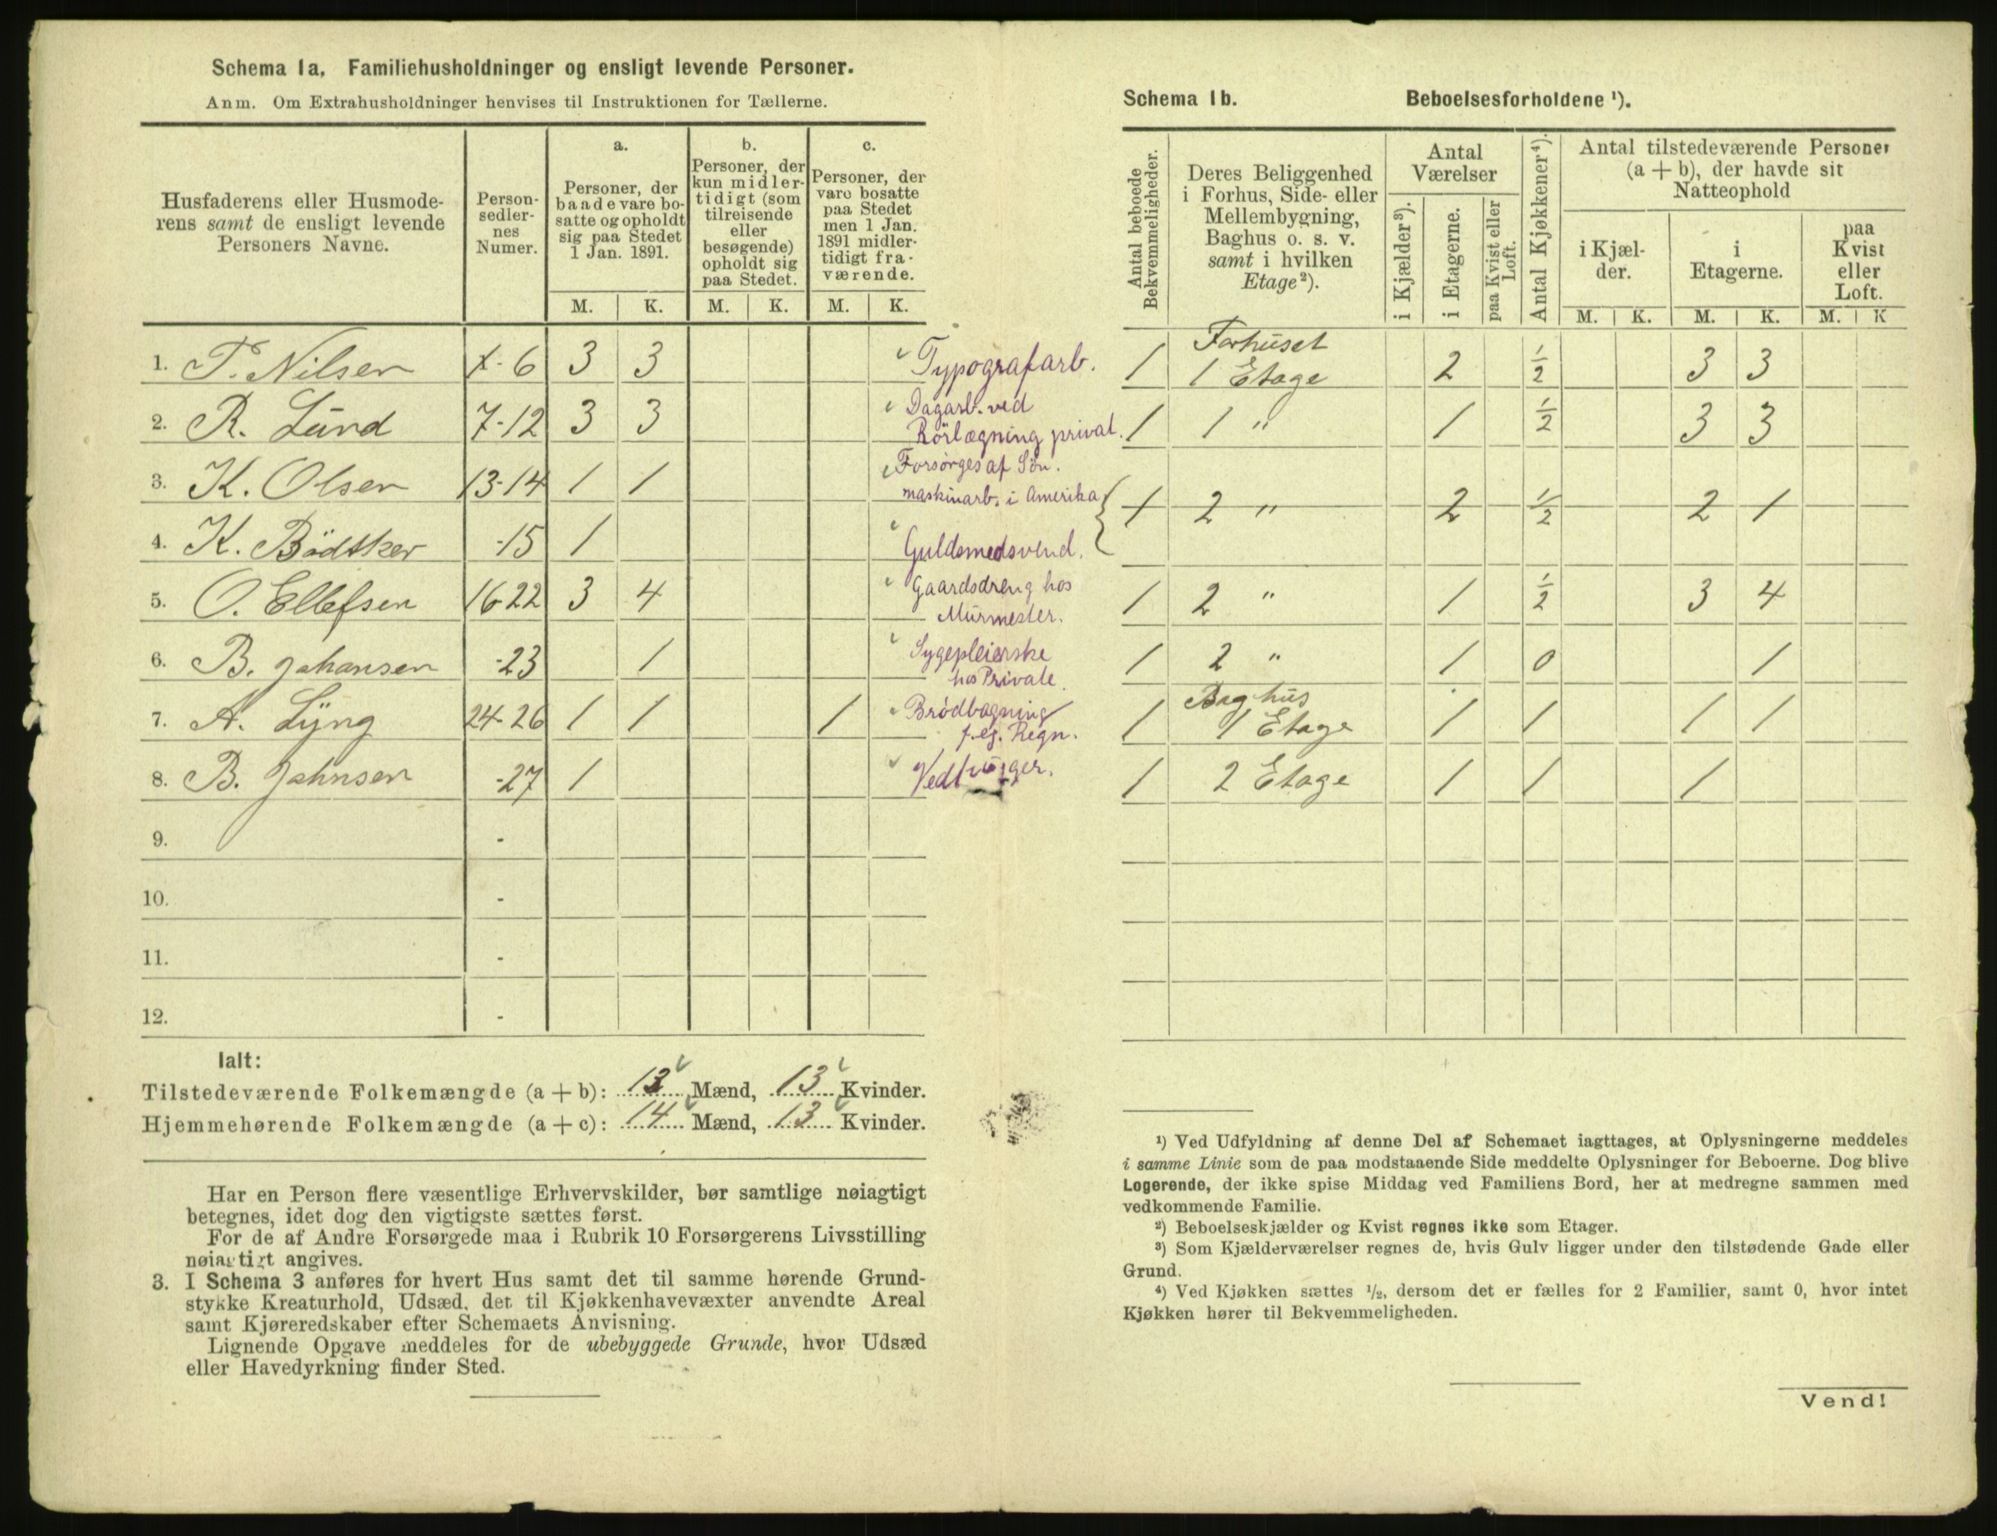 Schema 1a. Familiehusholdninger og ensligt levende Personer.
Anm. Om Extrahusholdninger henvises til Instruktionen for Tællerne.
Husfaderens eller Husmode-
rens samt de ensligt levende
Personers Navne.
Person-
sedler-
nes
Numer.
a.
Personer, der
baade vare bo-
satte og opholdt
sig paa Stedet
1 Jan. 1891.
b.
Personer, der
kun midler-
tidigt (som
tilreisende
eller
besøgende)
opholdt sig
paa Stedet.
c.
Personer, der
vare bosatte
paa Stedet
men 1 Jan.
1891 midler-
tidigt fra-
værende.
M. K. M. K. M. K.
1. P. Nilsen 1-6 3 3 Typografarb.
2. R. Lund 7-12 3 3 Dagarb. ved
Rörlægning privat.
3. K. Olsen 13-14 1 1 Forsørges af Sön.
maskinarb. i Amerika
4. K. Bödtker -15 1 Guldsmedsvend.
5. O. Ellefsen 16-22 3 4 Gaardsdreng hos
Murmester.
6. B. Johansen -23 1 Sygepleierske
hos Private.
7. A. Lÿng 24-26 1 1 1 Brödbagning
f. eg. Regn.
8. B. Johnsen -27 1
9. -
10. -
11. -
12. -
Ialt:
Tilstedeværende Folkemængde (a + b): 12 Mænd, 13 Kvinder.
Hjemmehørende Folkemængde (a + c): 14 Mænd, 13 Kvinder.
Har en Person flere væsentlige Erhvervskilder, bør samtlige nøiagtigt
betegnes, idet dog den vigtigste sættes først.
For de af Andre Forsørgede maa i Rubrik 10 Forsørgerens Livsstilling
nøiagtigt angives.
3. I Schema 3 anføres for hvert Hus samt det til samme hørende Grund-
stykke Kreaturhold, Udsæd, det til Kjøkkenhavevæxter anvendte Areal
samt Kjøreredskaber efter Schemaets Anvisning.
Lignende Opgave meddeles for de ubebyggede Grunde, hvor Udsæd
eller Havedyrkning finder Sted.
Schema 1b. Beboelsesforholdene ¹).
Antal beboede
Bekvemmeligheder.
Deres Beliggenhed
i Forhus, Side- eller
Mellembygning,
Baghus o. s. v.
samt i hvilken
Etage²).
Antal
Værelser
i Kjælder³).
i Etagerne.
paa Kvist eller
Loft.
Antal Kjøkkener⁴).
Antal tilstedeværende Personer
(a + b), der havde sit
Natteophold
i Kjæl-
der.
i
Etagerne.
paa
Kvist
eller
Loft.
M. K. M. K. M. K
1 Forhuset
1 Etage 2 ½ 3 3
1 1 " 1 ½ 3 3
1 2 " 2 ½ 2 1
1 2 " 1 ½ 3 4
1 2 " 1 0 1
1 Baghus
1 Etage 1 1 1 1
1 2 Etage 1 1 1
¹) Ved Udfyldning af denne Del af Schemaet iagttages, at Oplysningerne meddeles
i samme Linie som de paa modstaaende Side meddelte Oplysninger for Beboerne. Dog blive
Logerende, der ikke spise Middag ved Familiens Bord, her at medregne sammen med
vedkommende Familie.
²) Beboelseskjælder og Kvist regnes ikke som Etager.
³) Som Kjælderværelser regnes de, hvis Gulv ligger under den tilstødende Gade eller
Grund.
⁴) Ved Kjøkken sættes ½, dersom det er fælles for 2 Familier, samt 0, hvor intet
Kjøkken hører til Bekvemmeligheden.
Vend!